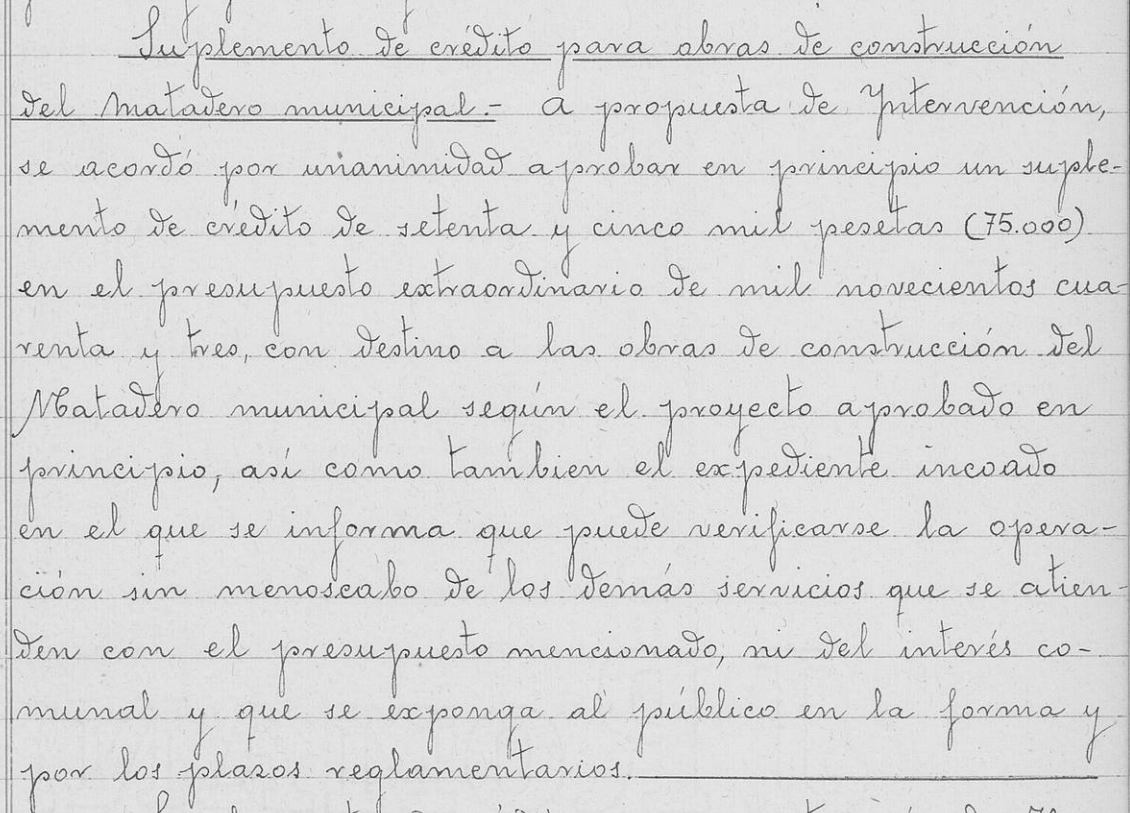 Suplemento de crédito para obras de construcción
del matadero municipal.- A propuesta de Yntervención,
se acordó por unanimidad aprobar en principio un suple-
mento de crédito de setenta y cinco mil pesetas (75.000)
en el presupuesto extraordinario de mil novecientos cua-
renta y tres, con destino a las obras de construcción del
Matadero municipal según el proyecto aprobado en
principio, así como tambien el expediente incoado
en el que se informa que puede verificarse la opera-
ción sin menoscabo de los demás servicios que se atien-
den con el presupuesto mencionado, ni del interés co-
munal y que se exponga al público en la forma y
por los plazos reglamentarios.